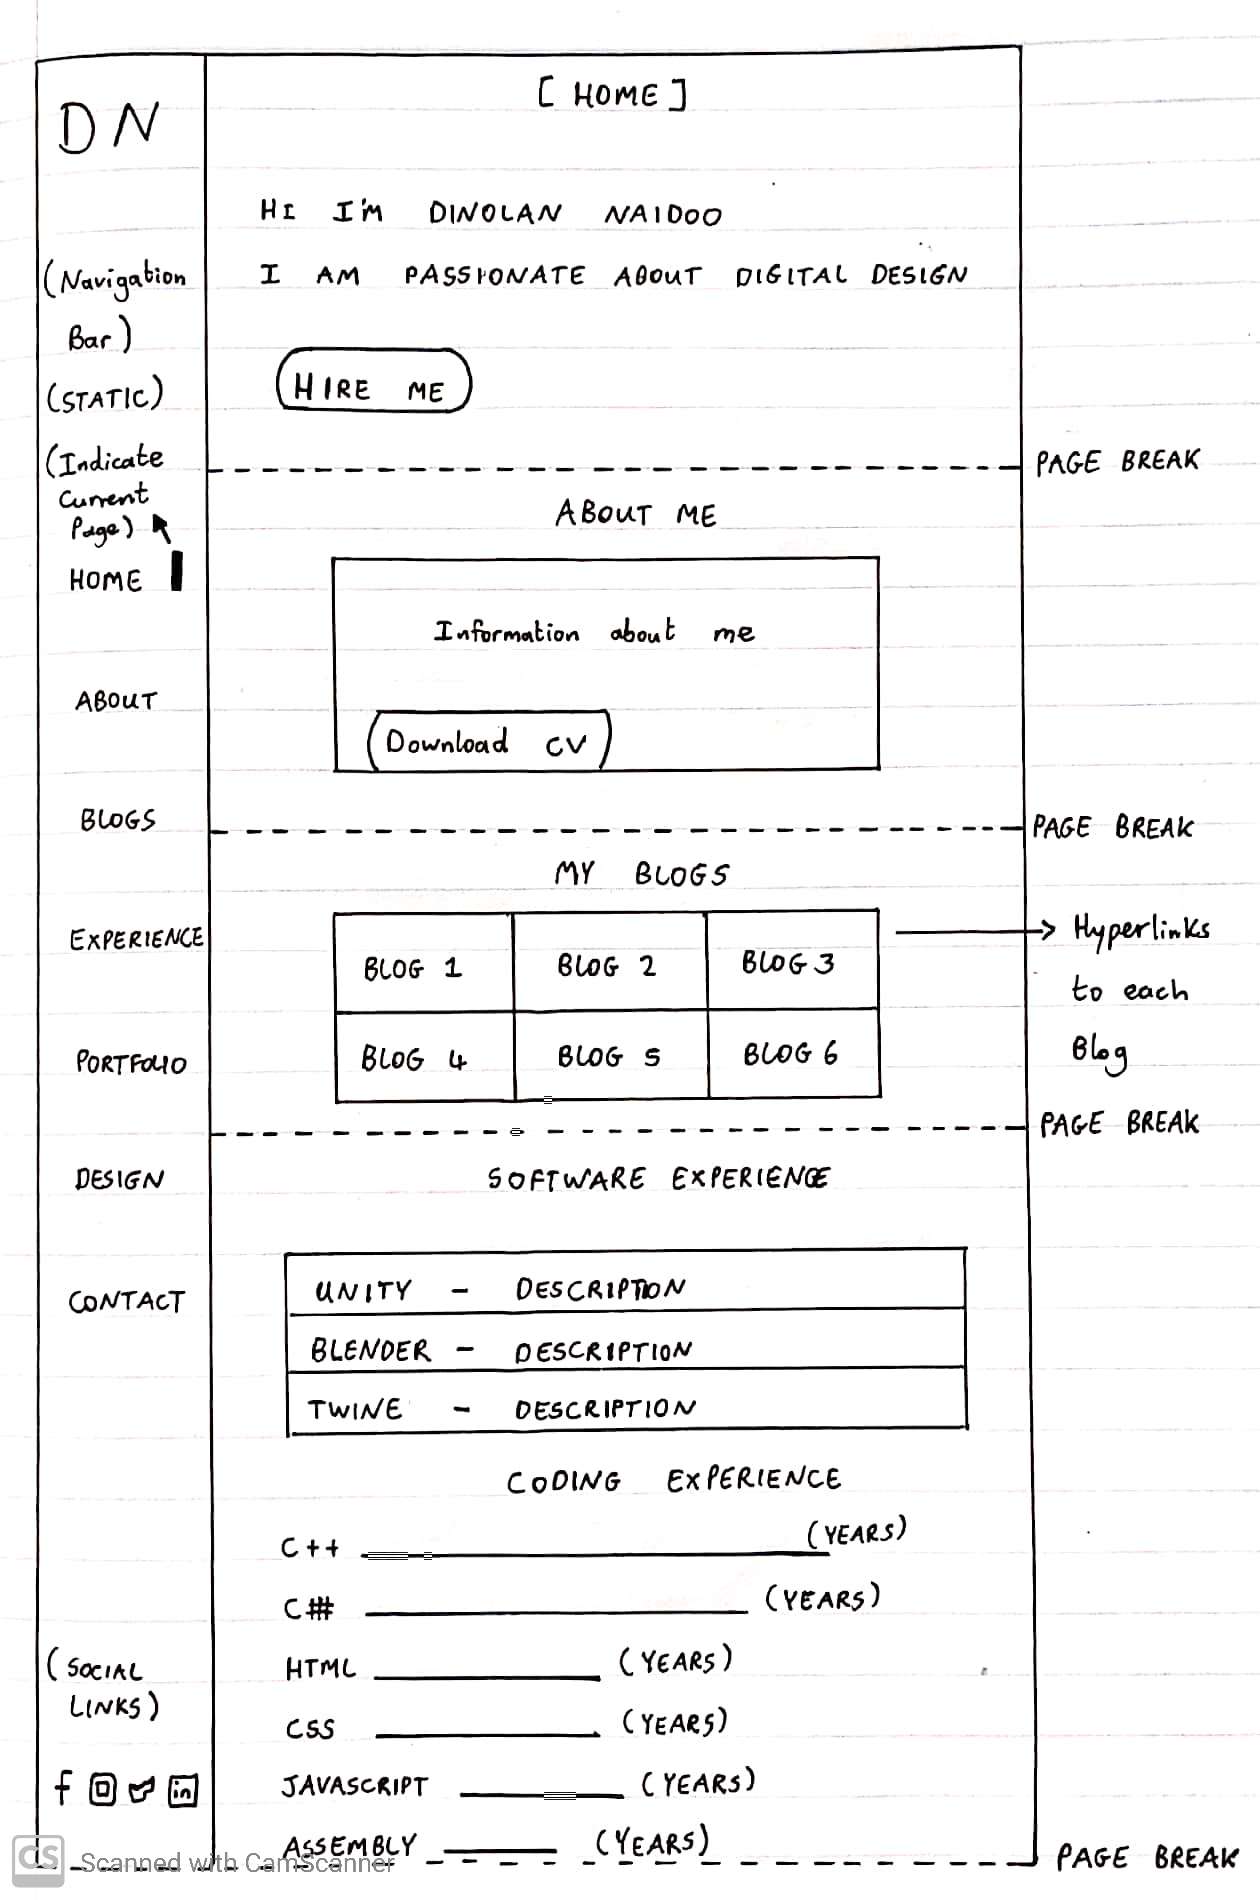 DN
(Navigation
Bar)
(STATIC)
(Indicate
Current
Page)
HOME
ABOUT
BLOGS
EXPERIENCE
PORTFOLIO
DESIGN
CONTACT
(SOCIAL
LINKS)
f in
[HOME]
HI I'M DINOLAN NAIDOO
I AM PASSIONATE ABOUT DIGITAL DESIGN
HIRE ME
PAGE BREAK
ABOUT ME
Information about me
Download CV
PAGE BREAK
MY BLOGS
BLOG 1 BLOG 2 BLOG 3
BLOG 4 BLOG 5 BLOG 6
Hyperlinks
to each
Blog
PAGE BREAK
SOFTWARE EXPERIENCE
UNITY - DESCRIPTION
BLENDER - DESCRIPTION
TWINE - DESCRIPTION
CODING EXPERIENCE
C++ (YEARS)
C# (YEARS)
HTML (YEARS)
CSS (YEARS)
JAVASCRIPT (YEARS)
ASSEMBLY (YEARS)
PAGE BREAK
CS Scanned with CamScanner